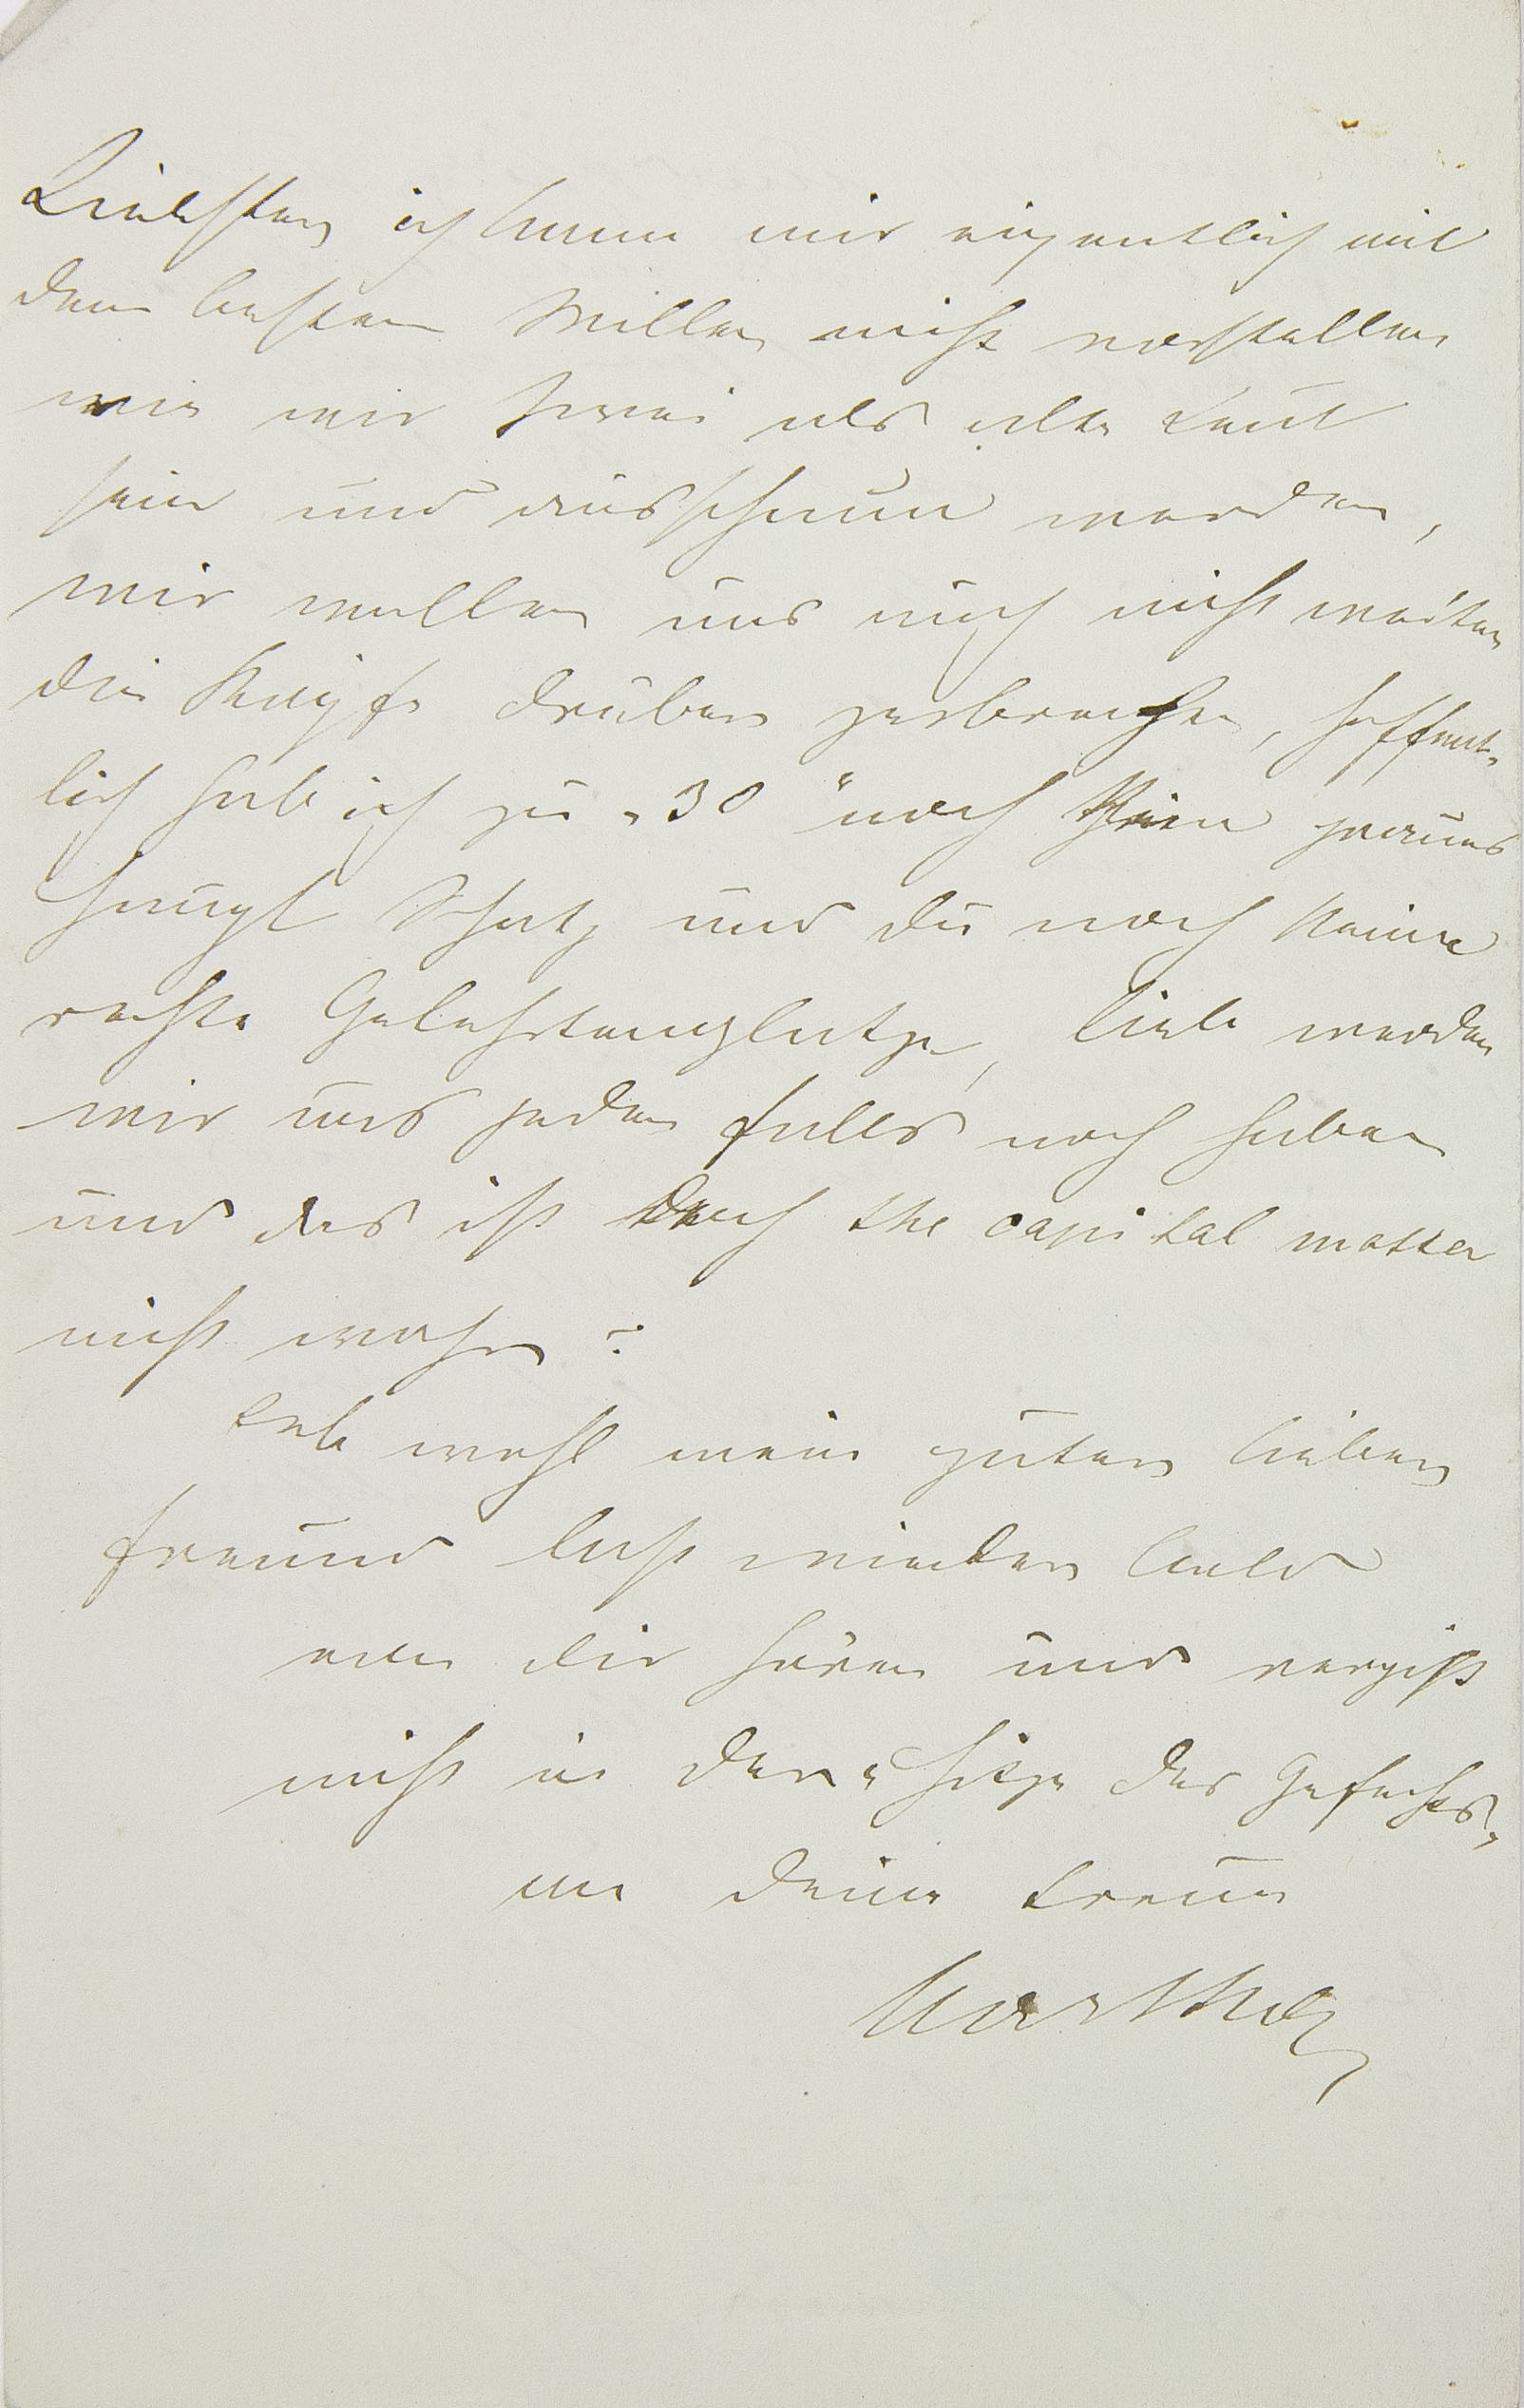 Liebster ich kann mir eigentlich mit
dem besten Willen nicht vorstellen
wie wir zwei als alte Leut
sein und ausschaun werden,
wir wollen uns auch nicht weiter
die Köpfe drüber zerbrechen, hoffent-
lich hab ich zu „30“ noch kein graues
Schatz und du noch keine
rechte Gelehrtenglatze, lieb werden
wir uns jeden falls noch haben
und das ist doch the capital matter
nicht wahr?
Leb wohl mein guter lieber
Freund lass wieder bald
von dir hören und vergiß
nicht in der „Hitze des Gefechts“
an deine treue
Martha